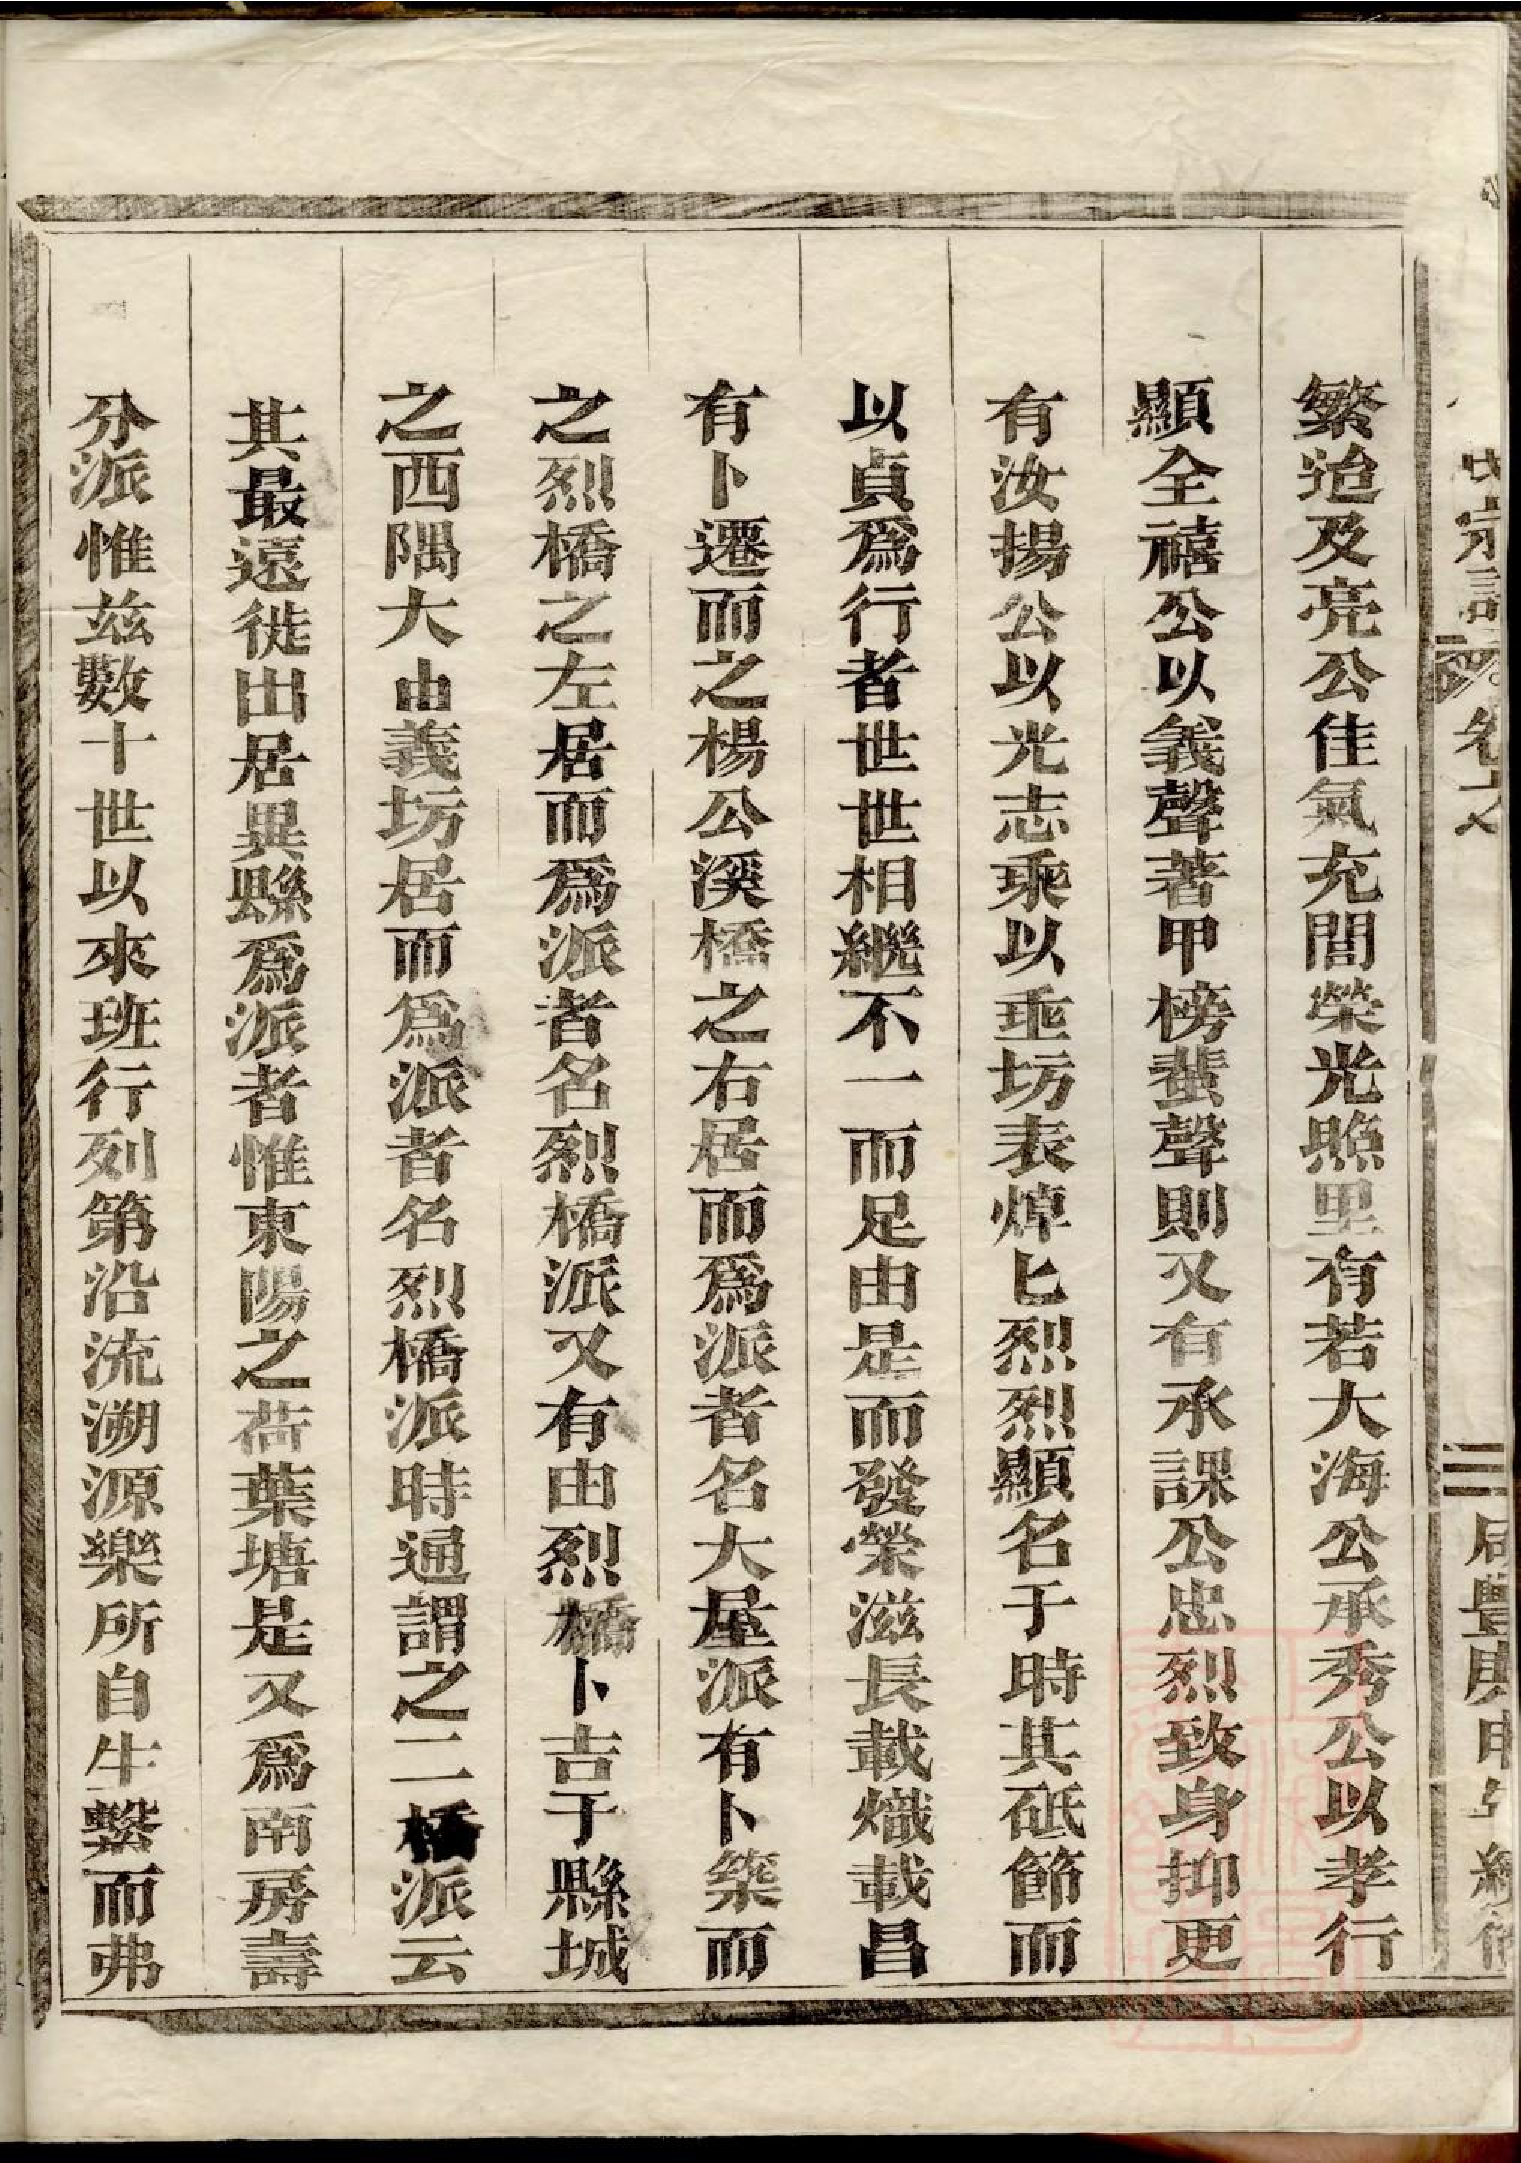 宗譜 卷之 三 咸豐庚申年續修
繁迨及亮公佳氣充閭榮光照里有若大海公承秀公以孝行
顯全禧公以義聲著甲榜蜚聲則又有承課公忠烈致身抑更
有汝揚公以光志乘以垂坊表焯匕烈烈顯名于時其砥節而
以貞爲行者世世相繼不一而足由是而發榮滋長載熾載昌
有卜遷而之楊公溪橋之右居而爲派者名大屋派有卜築而
之烈橋之左居而爲派者名烈橋派又有由烈橋卜吉于縣城
之西隅大由義坊居而爲派者名烈橋派時通謂之二橋派云
其最遠徙出居異縣爲派者惟東陽之荷葉塘是又爲南房壽
分派惟茲數十世以來班行列第沿流溯源樂所自生繫而弗